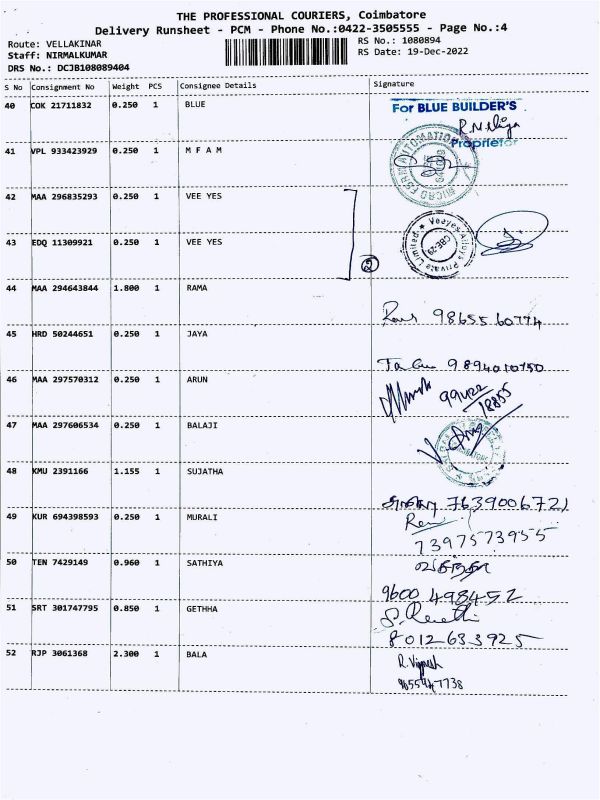 THE PROFESSIONAL COURIERS, Coimbatore
Delivery Runsheet - PCM - Phone No.:0422-3505555 - Page No.:4
Route: VELLAKINAR
RS No.: 1080894
Staff: NIRMALKUMAR
RS Date: 19-Dec-2022
DRS No.: DCJB108089404
S No Consignment No Weight PCS Consignee Details Signature
40 COK 21711832 0.250 1 BLUE
For BLUE BUILDER'S
Proprietor
41 VPL 933423929 0.250 1 M F A M
42 MAA 296835293 0.250 1 VEE YES
43 EDQ 11309921 0.250 1 VEE YES
2
Veeyes Alloys Private Limited
CBE-29
44 MAA 294643844 1.800 1 RAMA
98655 60774
45 HRD 50244651 0.250 1 JAYA
9894010750
46 MAA 297570312 0.250 1 ARUN
99422
18855
47 MAA 297606534 0.250 1 BALAJI
48 KMU 2391166 1.155 1 SUJATHA
7639006721
49 KUR 694398593 0.250 1 MURALI
7397573955
50 TEN 7429149 0.960 1 SATHIYA
9600 498452
51 SRT 301747795 0.850 1 GETHHA
8012633925
52 RJP 3061368 2.300 1 BALA
R. Vignesh